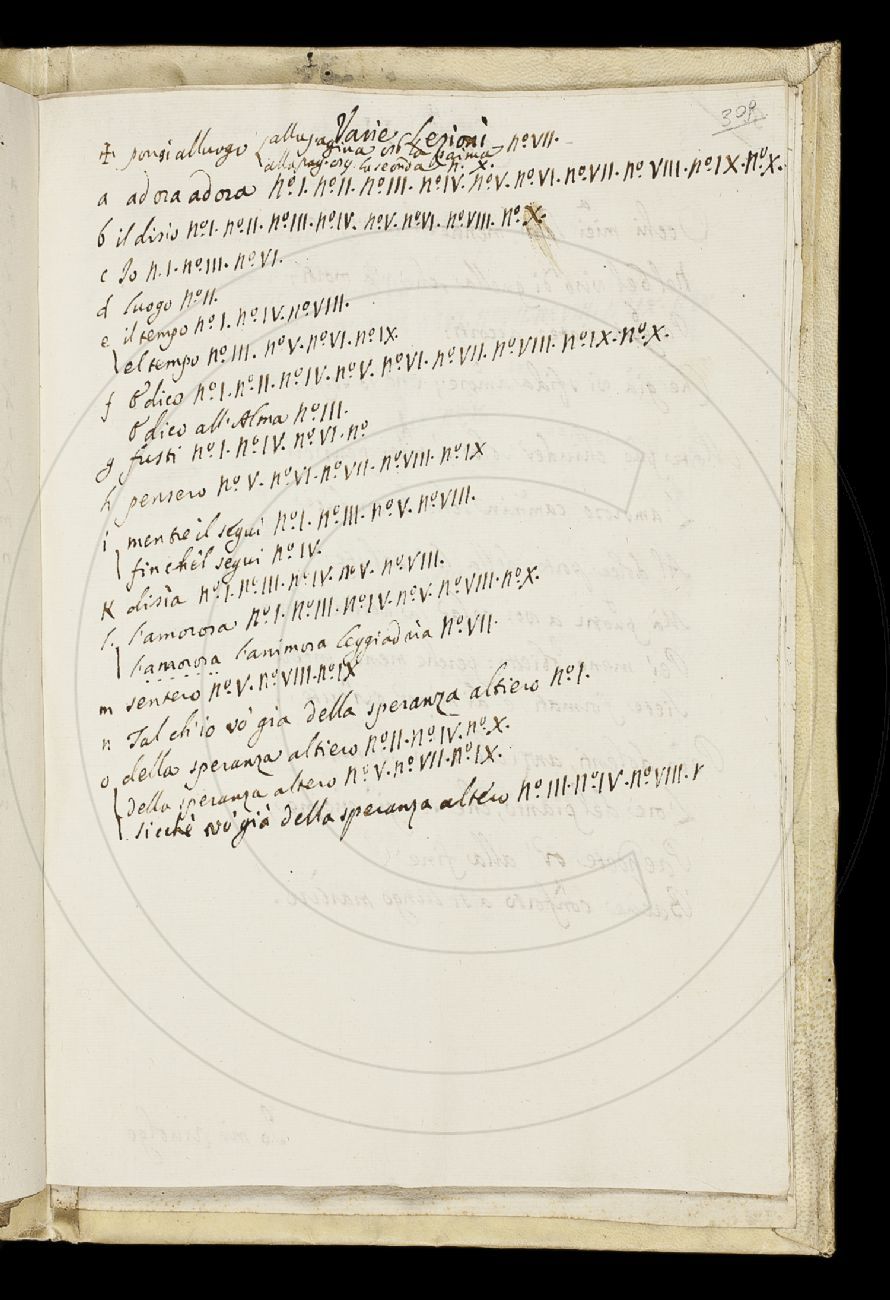 309.
Varie Lezioni
ponsi al luogo { alla pagina la prima nº VII.
alla pag. la seconda n. X.
a adora adora nº I. nº II. nº III. nº IV. nº V. nº VI. nº VII. nº VIII. nº IX. nº X.
b il disio nº I. nº II. nº III. nº IV. nº V. nº VI. nº VIII. nº X.
c Io n. I. nº III. nº VI.
d luogo nº II.
e il tempo nº I. nº IV. nº VIII.
el tempo nº III. nº V. nº VI. nº IX.
f dico nº I. nº II. nº IV. nº V. nº VI. nº VII. nº VIII. nº IX. nº X.
dico all'Alma nº III.
g fusti nº I. nº IV. nº VI. nº
h pensero nº V. nº VI. nº VII. nº VIII. nº IX
i mentre il segui nº I. nº III. nº V. nº VIII.
finchèl segui nº IV.
K disìa nº I. nº III. nº IV. nº V. nº VIII.
l. l'amorosa nº I. nº III. nº IV. nº V. nº VIII. nº X.
l'amorosa l'animosa leggiadria nº VII.
m sentero nº V. nº VIII. nº IX
n Tal ch'io vo' già della speranza altiero nº I.
o della speranza altiero nº II. nº IV. nº X.
della speranza altero nº V. nº VII. nº IX.
sicchè vo' già della speranza altéro nº III. nº IV. nº VIII. r